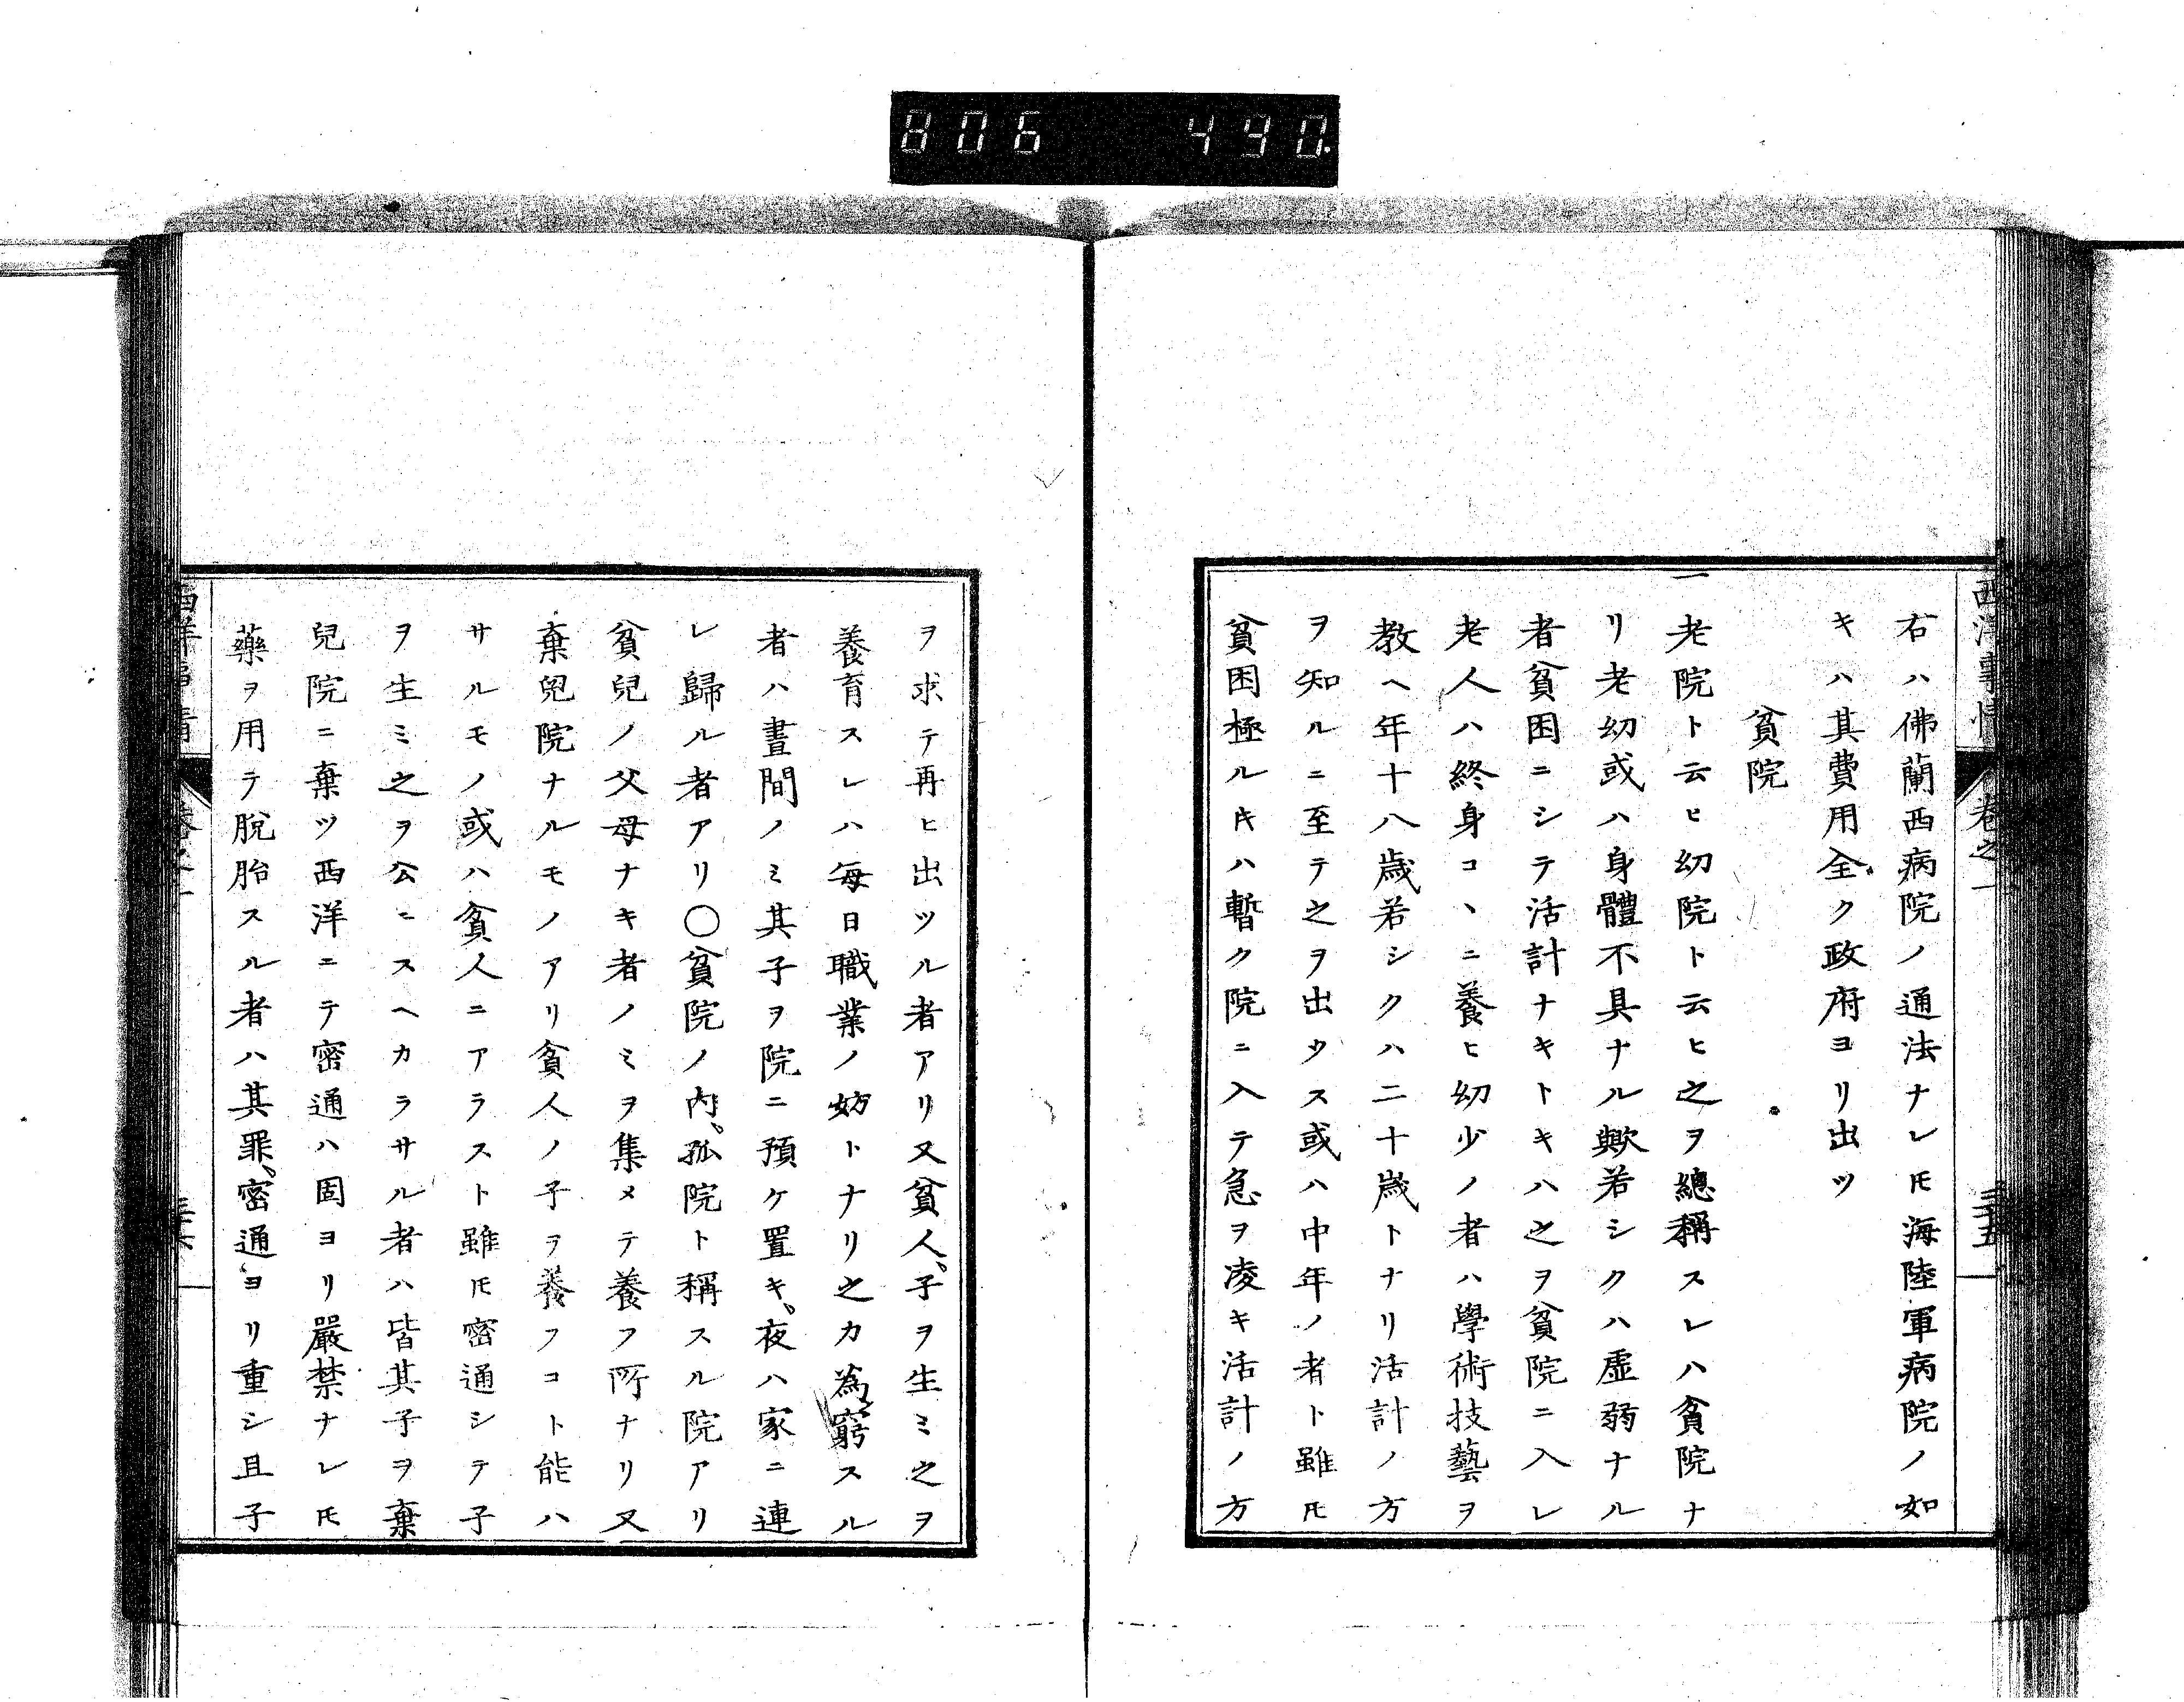 806 490.
西洋事情 卷之一 三十五
右ハ佛蘭西病院ノ通法ナレ𪜈海陸軍病院ノ如
キハ其費用全ク政府ヨリ出ツ
貧院
一老院ト云ヒ幼院ト云ヒ之ヲ總稱スレハ貧院ナ
リ老幼或ハ身體不具ナル歟若シクハ虛弱ナル
者貧困ニシテ活計ナキトキハ之ヲ貧院ニ入レ
老人ハ終身コヽニ養ヒ幼少ノ者ハ學術技藝ヲ
教ヘ年十八歳若シクハ二十歳トナリ活計ノ方
ヲ知ルニ至テ之ヲ出タス或ハ中年ノ者ト雖𪜈
貧困極ルキハ暫ク院ニ入テ急ヲ凌キ活計ノ方
ヲ求テ再ヒ出ツル者アリ又貧人、子ヲ生ミ之ヲ
養育スレハ每日職業ノ妨トナリ之カ為窮スル
者ハ晝間ノミ其子ヲ院ニ預ケ置キ、夜ハ家ニ連
レ歸ル者アリ○貧院ノ內、孤院ト稱スル院アリ
貧兒ノ父母ナキ者ノミヲ集メテ養フ所ナリ又
棄兒院ナルモノアリ貧人ノ子ヲ養フコト能ハ
サルモノ或ハ貧人ニアラスト雖𪜈密通シテ子
ヲ生ミ之ヲ公ニスヘカラサル者ハ皆其子ヲ棄
兒院ニ棄ツ西洋ニテ密通ハ固ヨリ嚴禁ナレ𪜈
藥ヲ用テ脫胎スル者ハ其罪、密通ヨリ重シ且子
西洋事情 卷之一